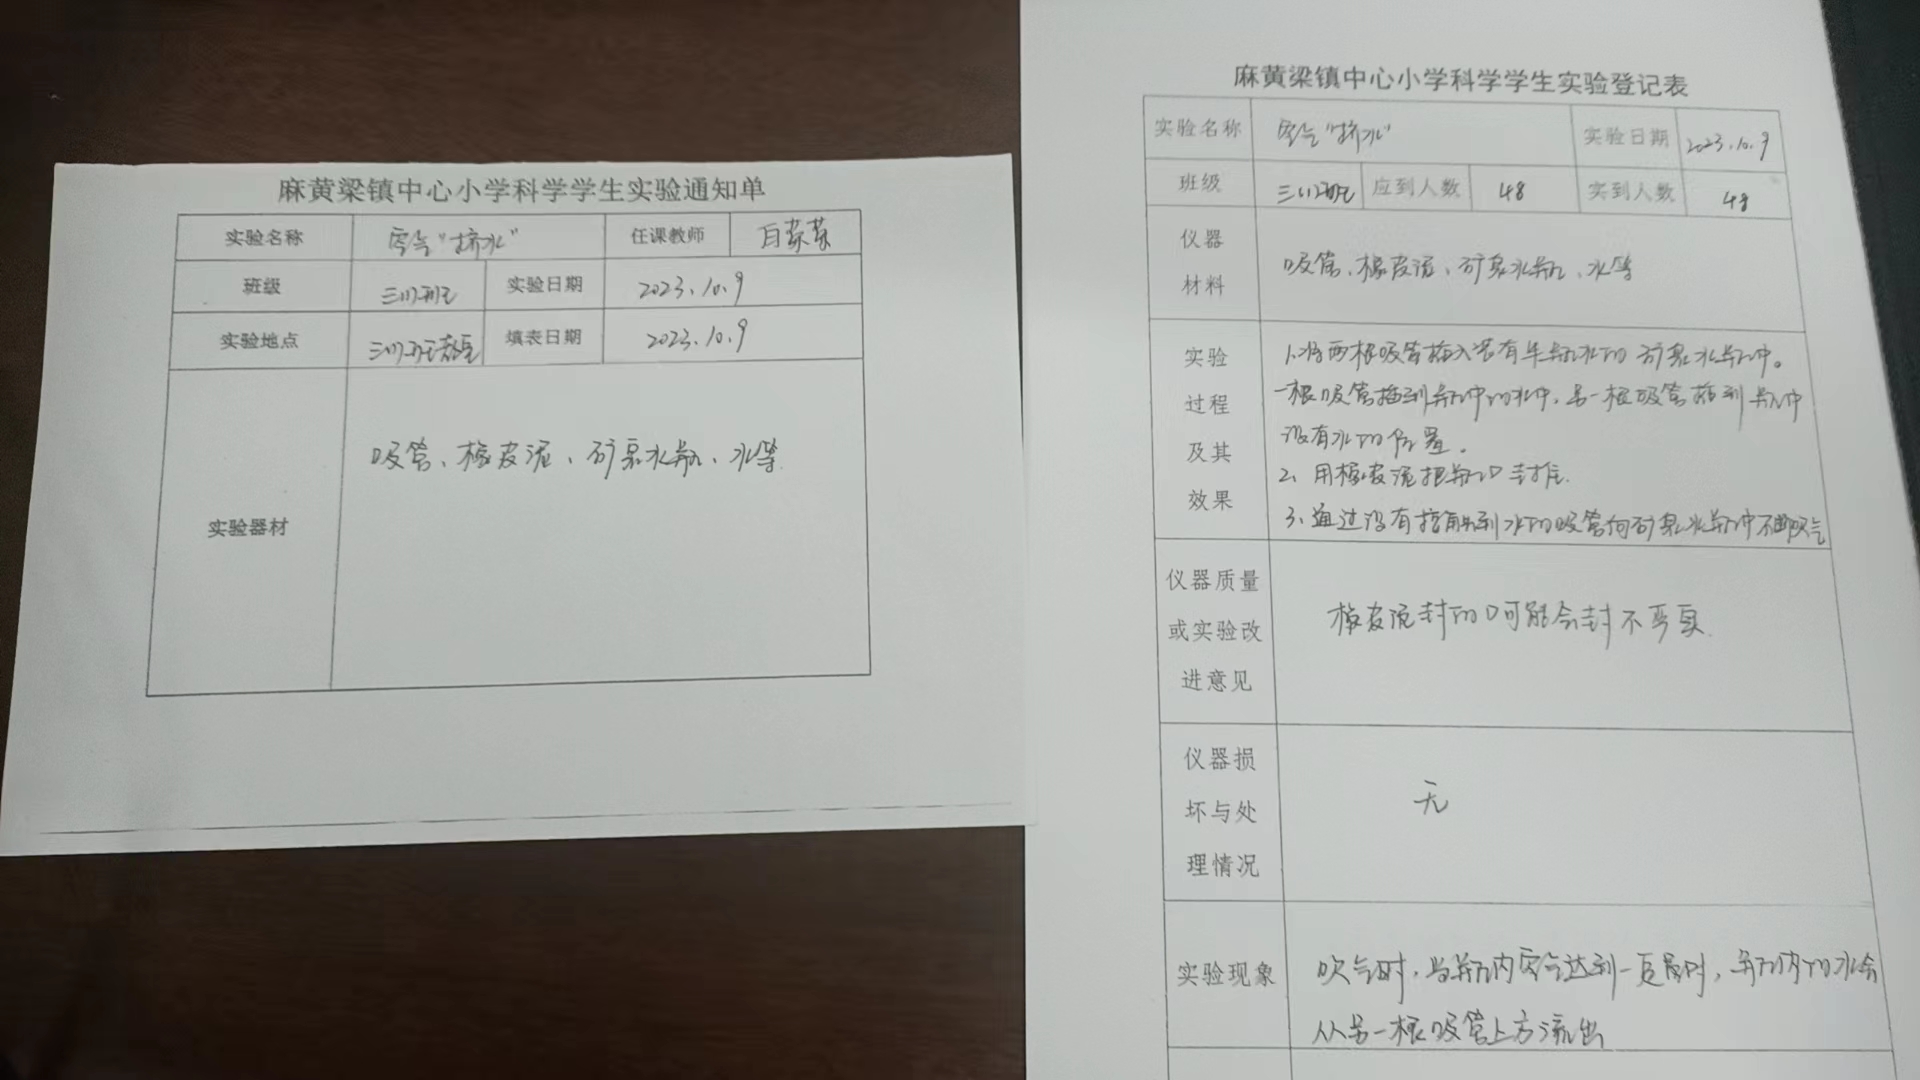 麻黄梁镇中心小学科学学生实验通知单
实验名称 空气“挤水” 任课教师 白莎莎
班级 三(1)班 实验日期 2023.10.9
实验地点 三(1)班教室 填表日期 2023.10.9
实验器材
吸管、橡皮泥、矿泉水瓶、水等
麻黄梁镇中心小学科学学生实验登记表
实验名称 空气“挤水” 实验日期 2023.10.9
班级 三(1)班 应到人数 48 实到人数 48
仪器
材料
吸管、橡皮泥、矿泉水瓶、水等
实验
过程
及其
效果
1.将两根吸管插入装有半瓶水的矿泉水瓶中。
一根吸管插到瓶中的水中,另一根吸管插到瓶中
没有水的位置。
2、用橡皮泥把瓶口封住.
3、通过没有接触到水的吸管向矿泉水瓶中不断吹气
仪器质量
或实验改
进意见
橡皮泥封的口可能会封不严实.
仪器损
坏与处
理情况
无
实验现象
吹气时,当瓶内空气达到一定量时,瓶内的水会
从另一根吸管上方流出